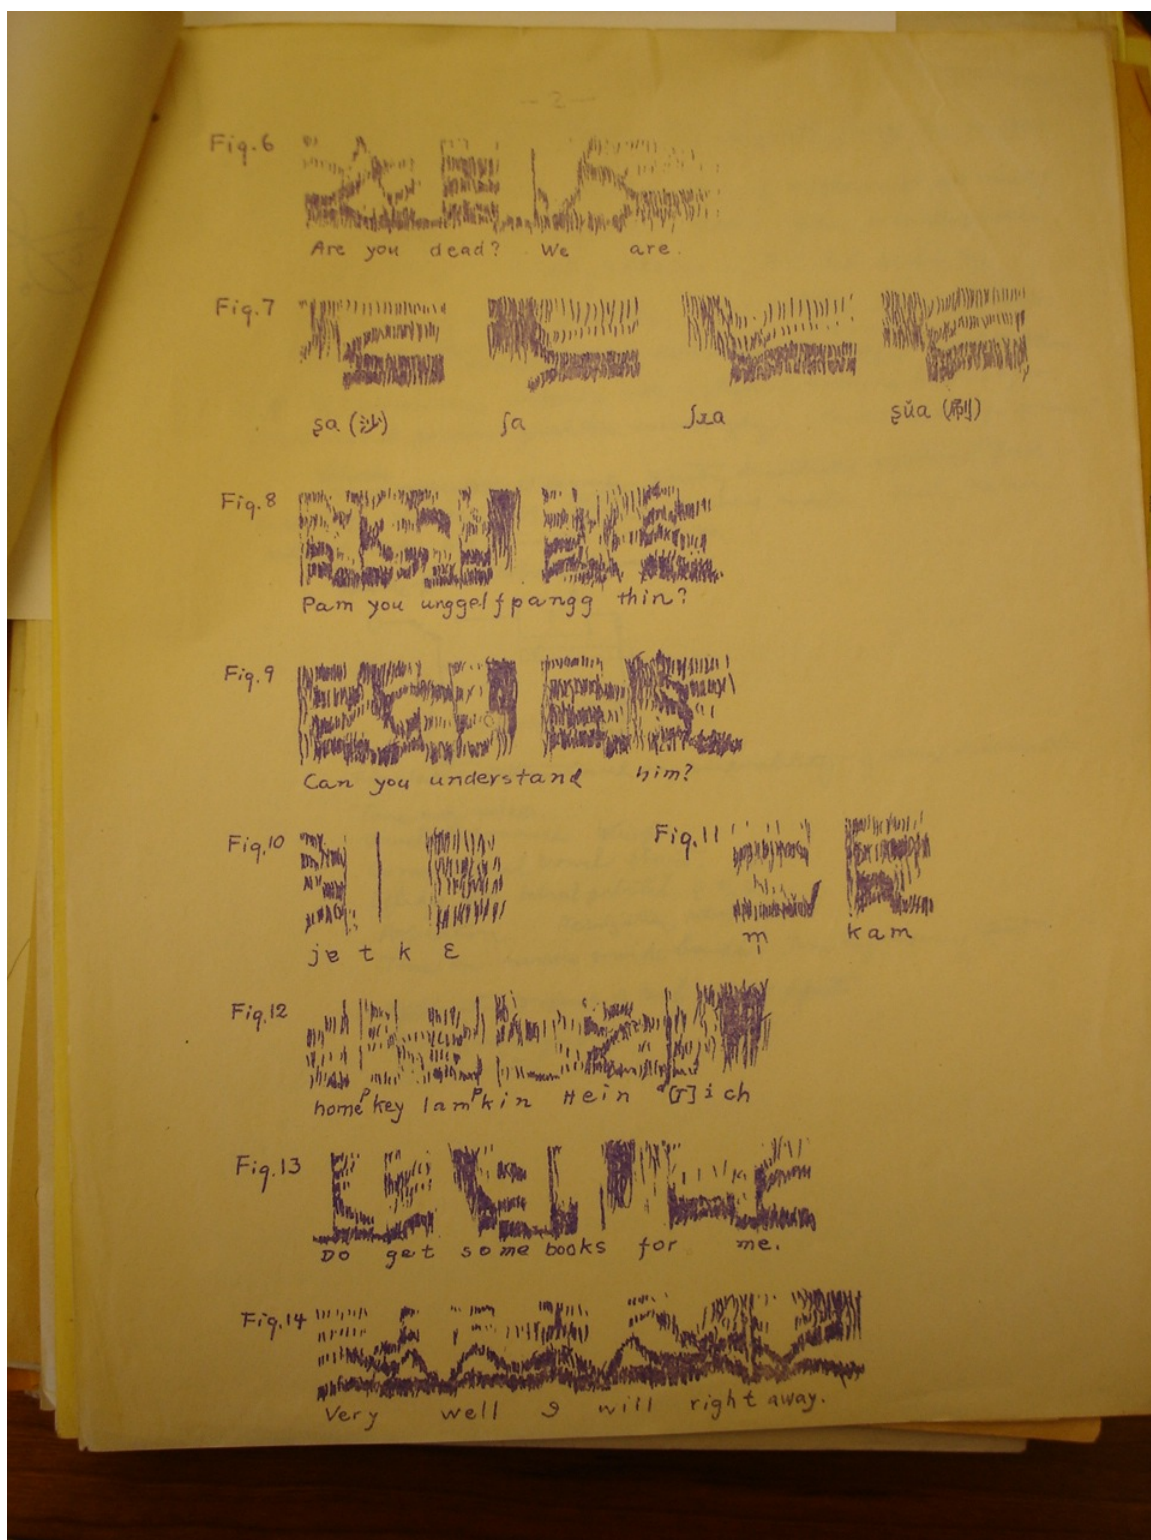 — 2 —
Fig.6
Are you dead? We are.
Fig.7
ʂa (沙) ʃa ʃɹa ʂŭa (刷)
Fig.8
Pam you unggelfpangg thin?
Fig.9
Can you understand him?
Fig.10 Fig.11
jɐ t k ɛ m̩ kam
Fig.12
home ᵖkey lamᵖkin Hein ᵈ[r]ich
Fig.13
Do get some books for me.
Fig.14
Very well I will right away.